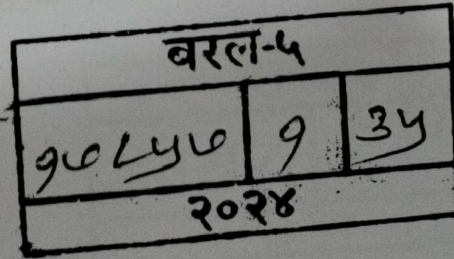 बरल-५
१७८५७ १ ३५
२०२४